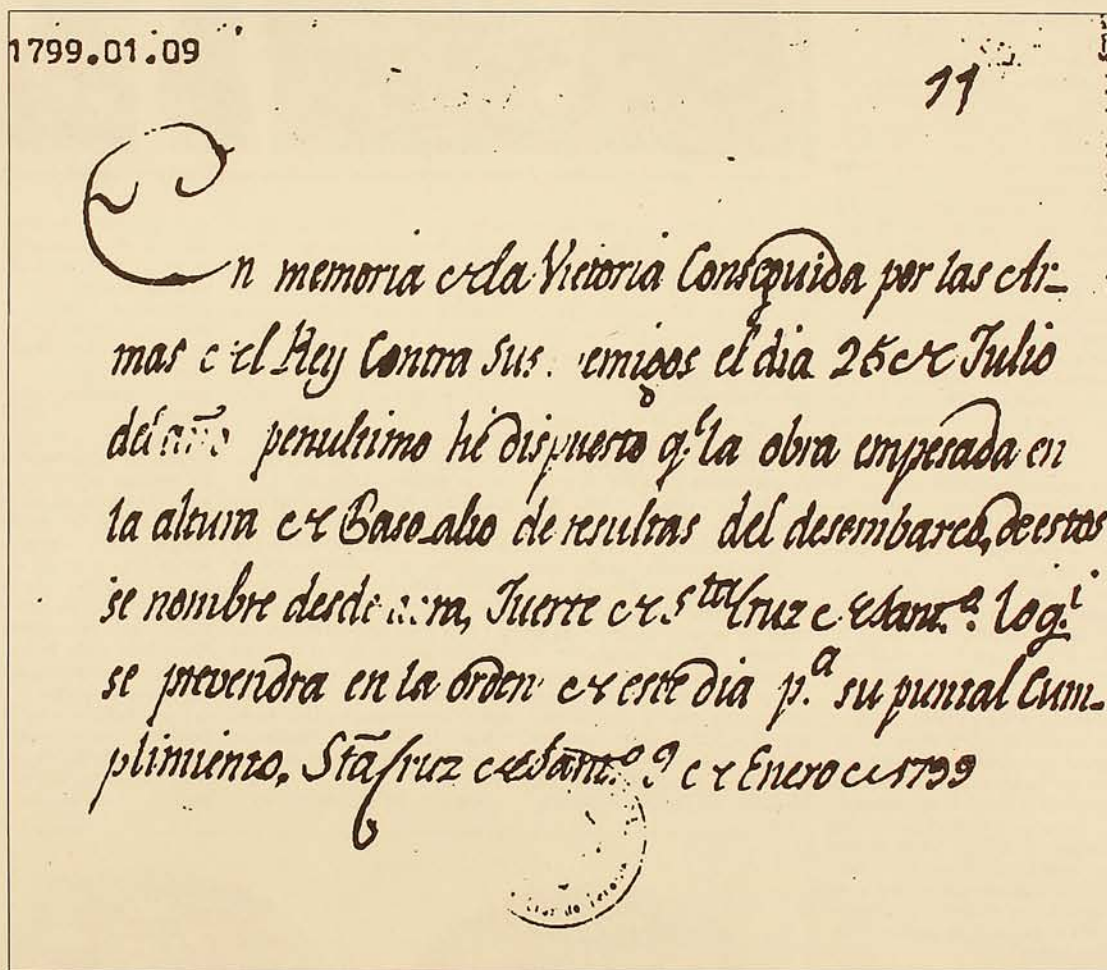 1799.01.09
11
En memoria de la Victoria Conseguida por las Ar-
mas del Rey Contra sus emigos el dia 25 de Julio
del año penultimo hé dispuesto q.e la obra empesada en
la altura de Paso-alto de resultas del desembarco, de estos
se nombre desde ora, Fuerte de S.ta Cruz de Sant.o lo q.e
se prevendra en la orden de este dia p.a su puntal Cum-
plimiento. Sta Cruz de Sant.o 9 de Enero de 1799